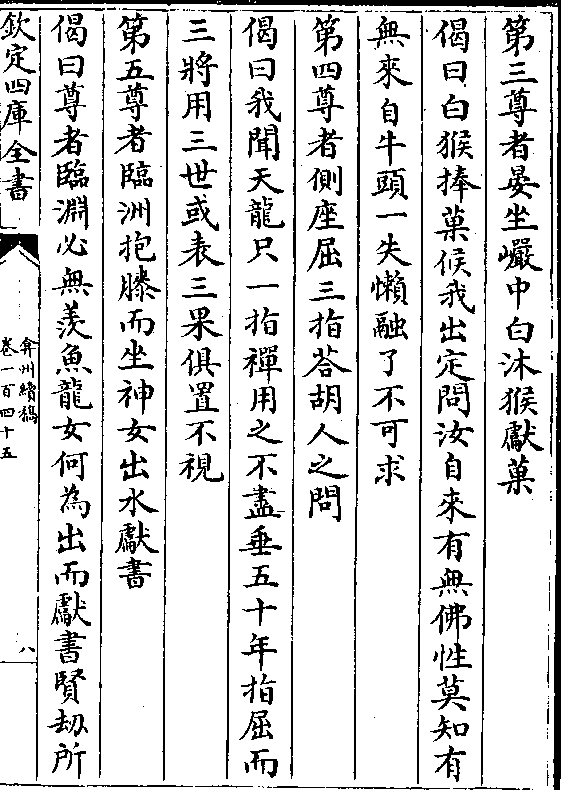 第三尊者晏坐巖中白沐猴獻菓
偈曰白猴捧菓候我出定問汝自來有無佛性莫知有
無來自牛頭一失懶融了不可求
第四尊者側座屈三指荅胡人之問
偈曰我聞天龍只一指禪用之不盡垂五十年指屈而
三將用三世或表三果俱置不視
第五尊者臨洲抱膝而坐神女出水獻書
偈曰尊者臨淵必無羨魚龍女何為出而獻書賢劫所
欽定四庫全書
弇州續稿
卷一百四十五
八